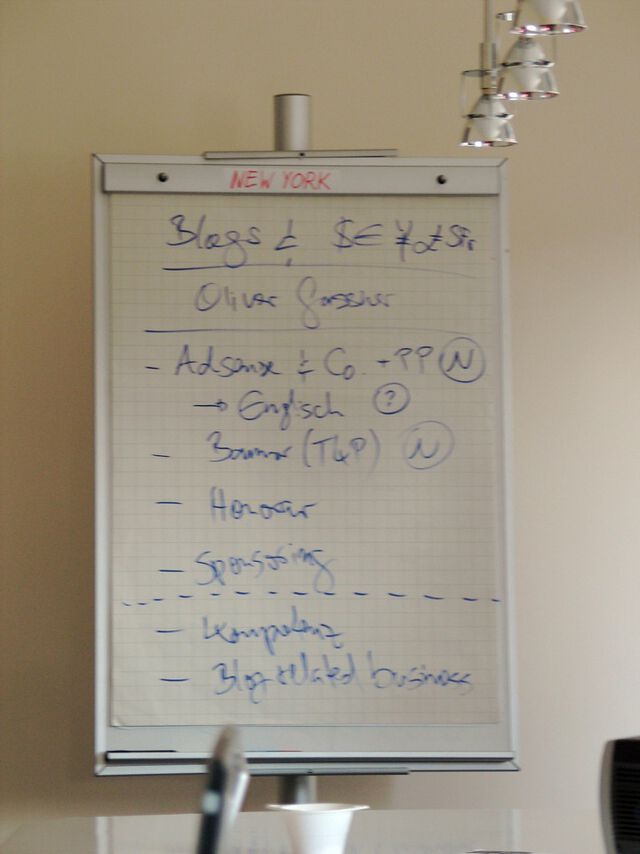 NEW YORK
Blogs & $€ ¥
Oliver
- Adsense & Co. + PP (N)
→ Englisch (?)
- Banner (TLP) (N)
- Honorar
- Sponsoring
- Kompetenz
- Blog related business